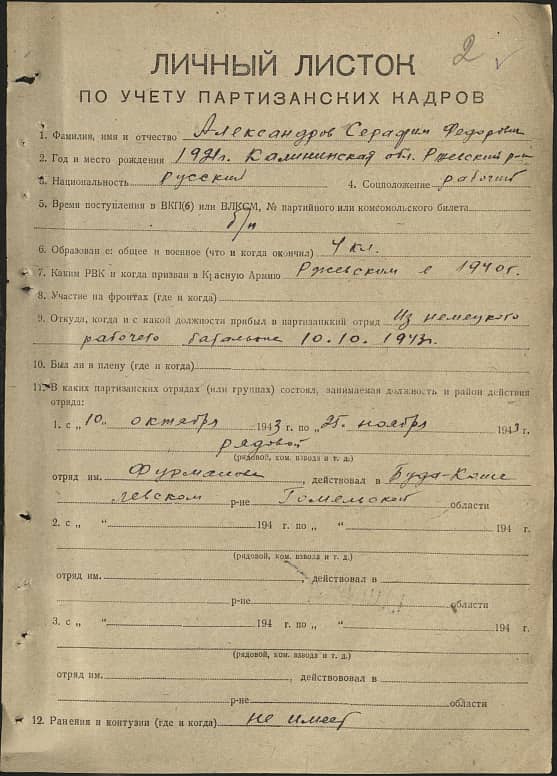 2
ЛИЧНЫЙ ЛИСТОК
ПО УЧЕТУ ПАРТИЗАНСКИХ КАДРОВ
1. Фамилия, имя и отчество Александров Серафим Федорович
2. Год и место рождения 1921г. Калининская обл. Ржевский р-н
3. Национальность русский 4. Соцположение рабочий
5. Время поступления в ВКП(б) или ВЛКСМ, № партийного или комсомольского билета
б/п
6. Образование: общее и военное (что и когда окончил) 4 кл.
7. Каким РВК и когда призван в Красную Армию Ржевским в 1940г.
8. Участие на фронтах (где и когда)
9. Откуда, когда и с какой должности прибыл в партизанский отряд Из немецкого
рабочего батальона 10.10.1943г.
10. Был ли в плену (где и когда)
11. В каких партизанских отрядах (или группах) состоял, занимаемая должность и район действия
отряда:
1. с „10“ октября 1943 г. по „25“ ноября 1943 г.
рядовой
(рядовой, ком. взвода и т. д.)
отряд им. Фурманова, действовал в Буда-Коше
левском р-не Гомельской области
2. с „ “ 194 г. по „ “ 194 г.
(рядовой, ком. взвода и т. д.)
отряд им. , действовал в
р-не области
3. с „ “ 194 г. по „ “ 194 г.
(рядовой, ком. взвода и т. д.)
отряд им. , действововал в
р-не области
12. Ранения и контузии (где и когда) не имеет